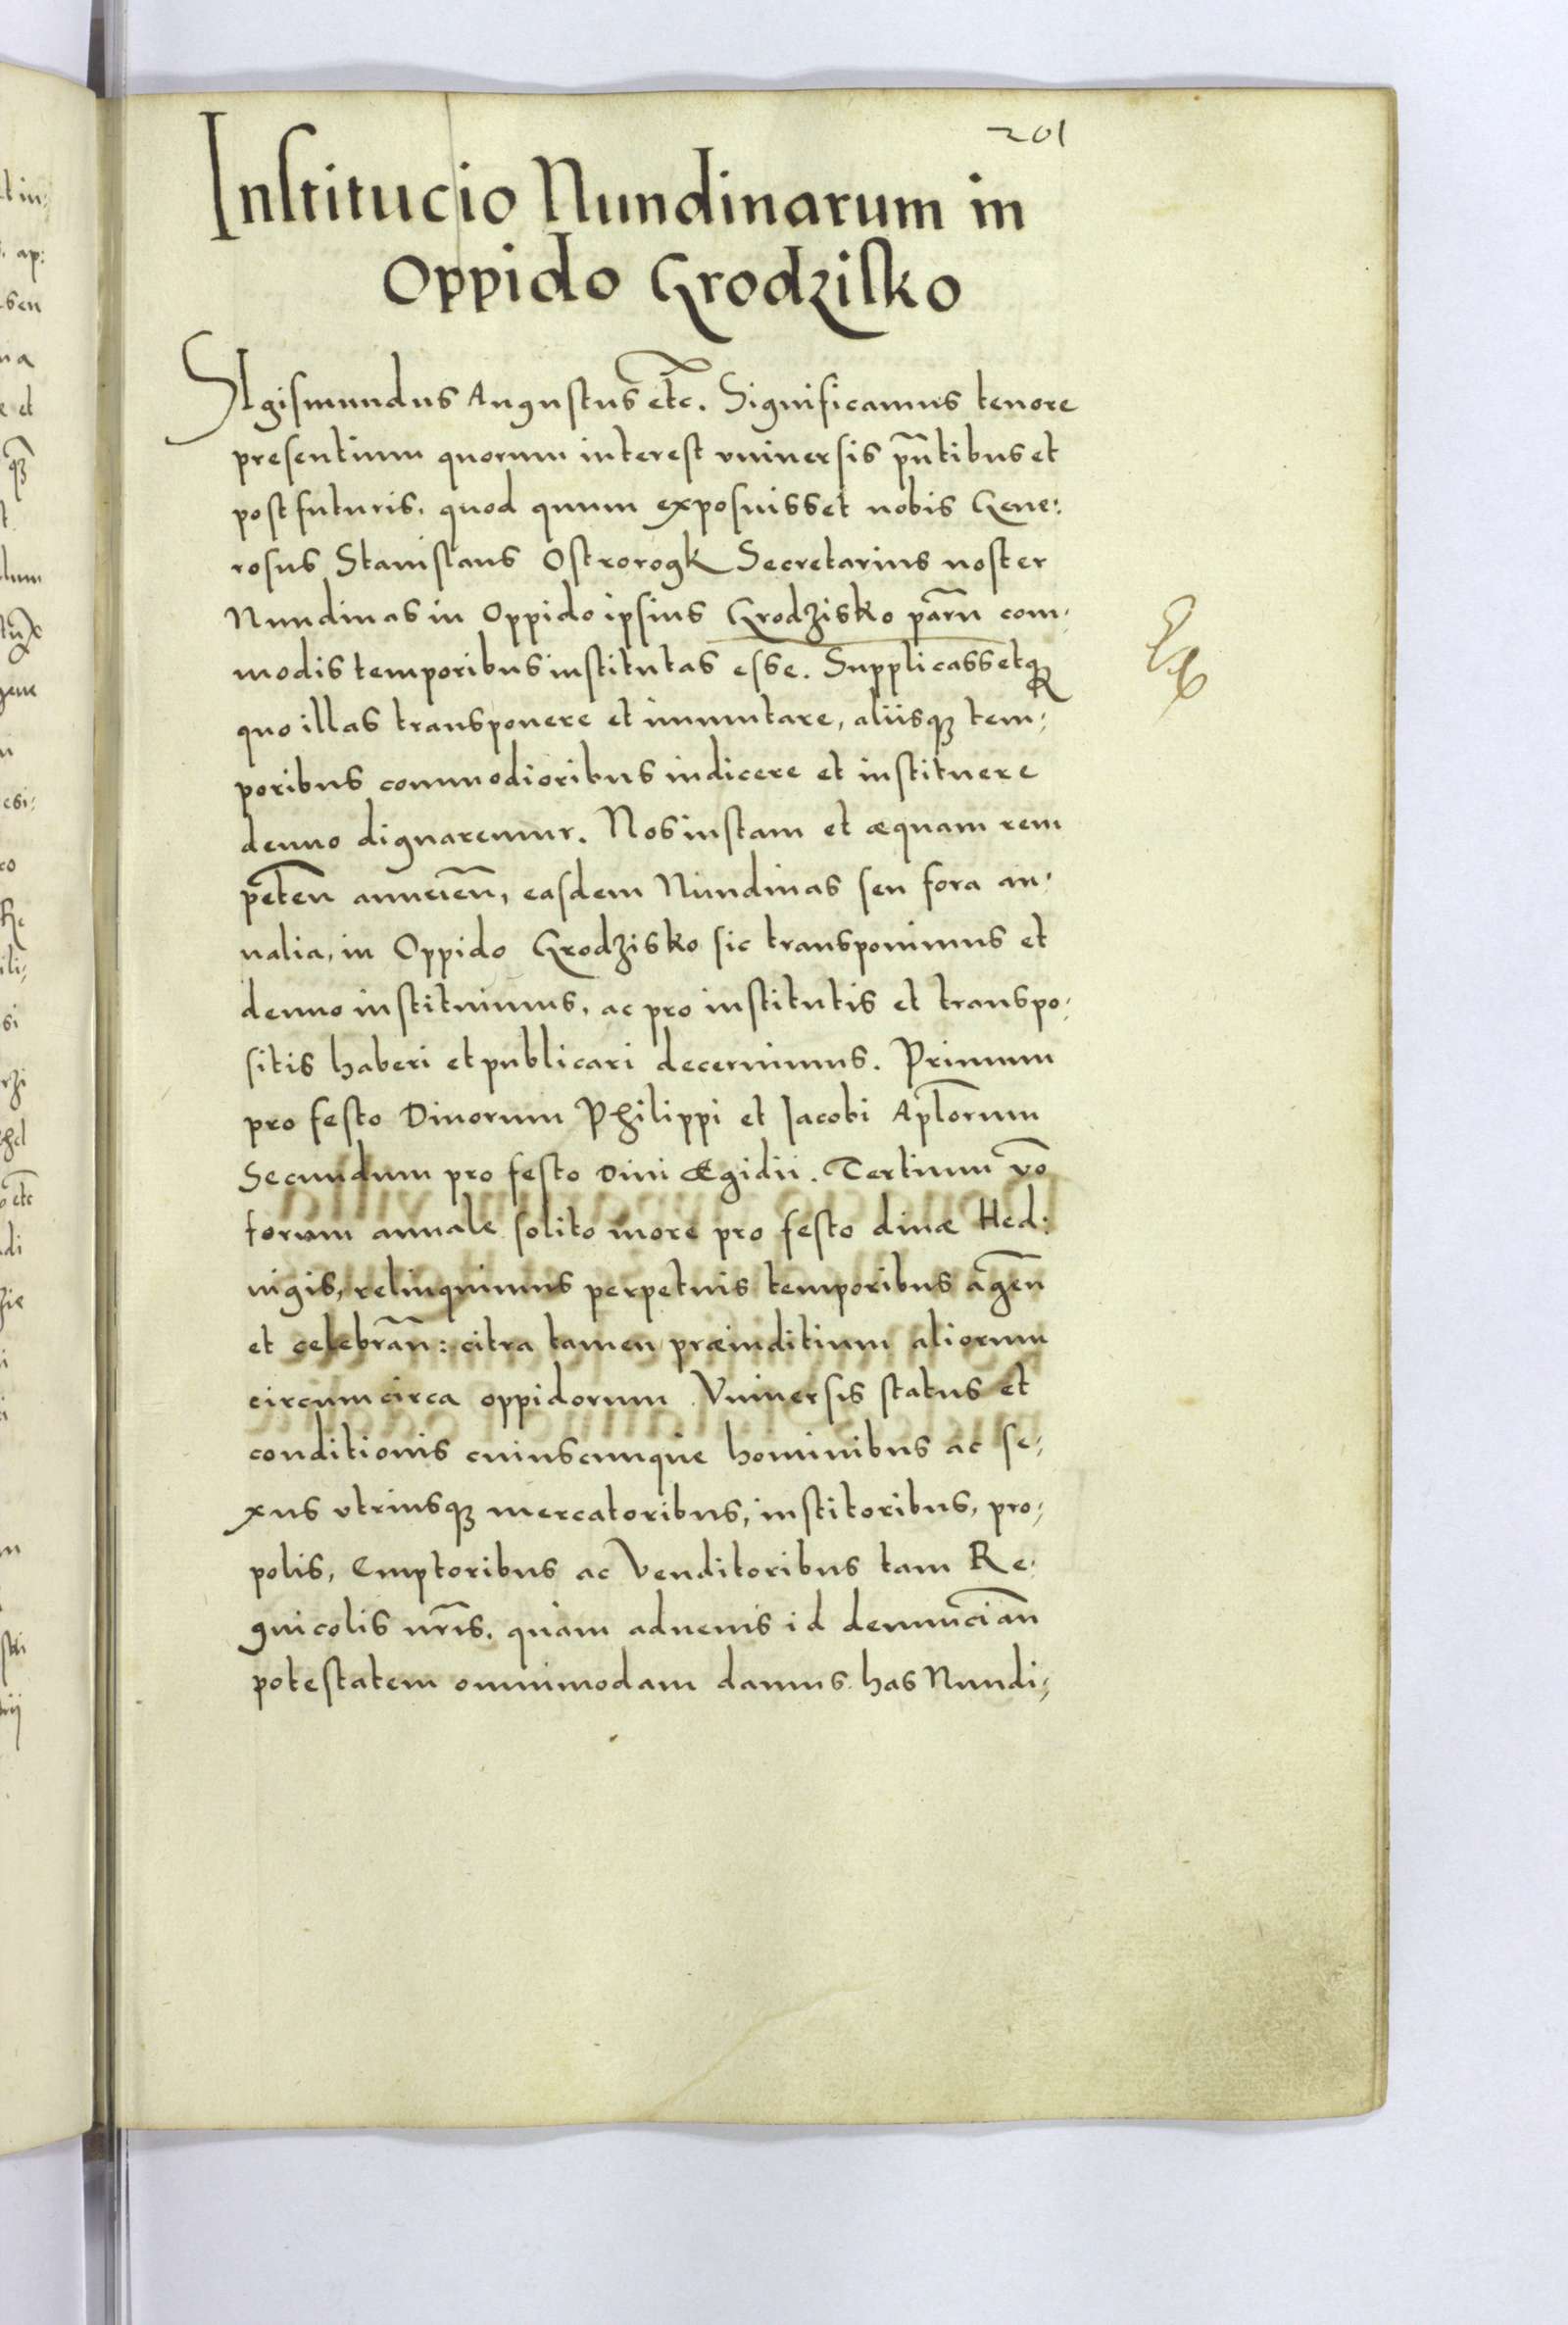 201
Institucio Nundinarum in
Oppido Grodzisko
SIgismundus Augustus etc. Significamus tenore
presentium quorum interest vniuersis pn̅tibus et
post futuris, quod quum exposuisset nobis Gene:
rosus Stanislaus Ostrorogk Secretarius noster
Nundinas in Oppido ipsius Grodzisko paru̅ com:
modis temporibus institutas esse. Supplicassetqꝫ
quo illas transponere et immutare, aliisqꝫ tem:
poribus commodioribus indicere et instituere
denuo dignaremur. Nos iustam et æquam rem
peten̅ annuen̅, easdem Nundinas seu fora an:
nalia, in Oppido Grodzisko sic transponimus et
denuo instituimus, ac pro institutis et transpo:
sitis haberi et publicari decernimus. Primum
pro festo Diuorum Philippi et Jacobi Apl̅orum
Secundum pro festo Diui Ægidii. Tertium vo̅
forum annale solito more pro festo diuæ Hed:
uigis, relinquimus perpetuis temporibus agen̅
et celebran̅: citra tamen præiuditium aliorum
circumcirca oppidorum. Vniuersis status et
conditionis cuiuscunque hominibus ac se:
xus vtriusqꝫ mercatoribus, institoribus, pro:
polis, Emptoribus ac Venditoribus tam Re:
gnicolis nr̅is, quam aduenis id denuncian̅
potestatem omnimodam damus has Nundi: